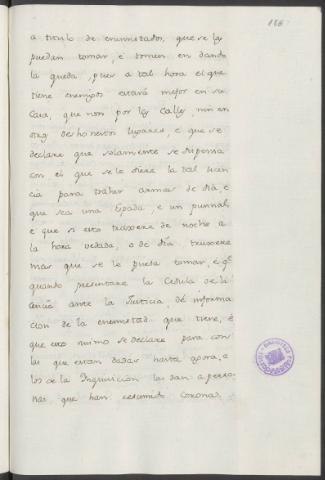 186
a titulo de enemistados, que se les
puedan tomar, e tomen en dando
la queda, pues a tal hora el que
tiene enemigos estará mejor en su
casa, que non por las calles, nin en
otros deshonestos lugares, e que se
declare que solamente se dispensa
con el que se le diere la tal licen
cia para traher armas de dia, e
que sea una Espada, e un puñal,
e que si esto truxere de noche a
la hora vedada, o de dia, truxere
mas que se le pueda tomar, e q.e
quando presentare la Cedula de li
cencia ante la Justicia, dé informa
cion de la enemistad que tiene, e
que esto mismo se declare para con
las que estan dadas hasta agora, e
los de la Inquisicion las dan a perso
nas que han resumido coronas